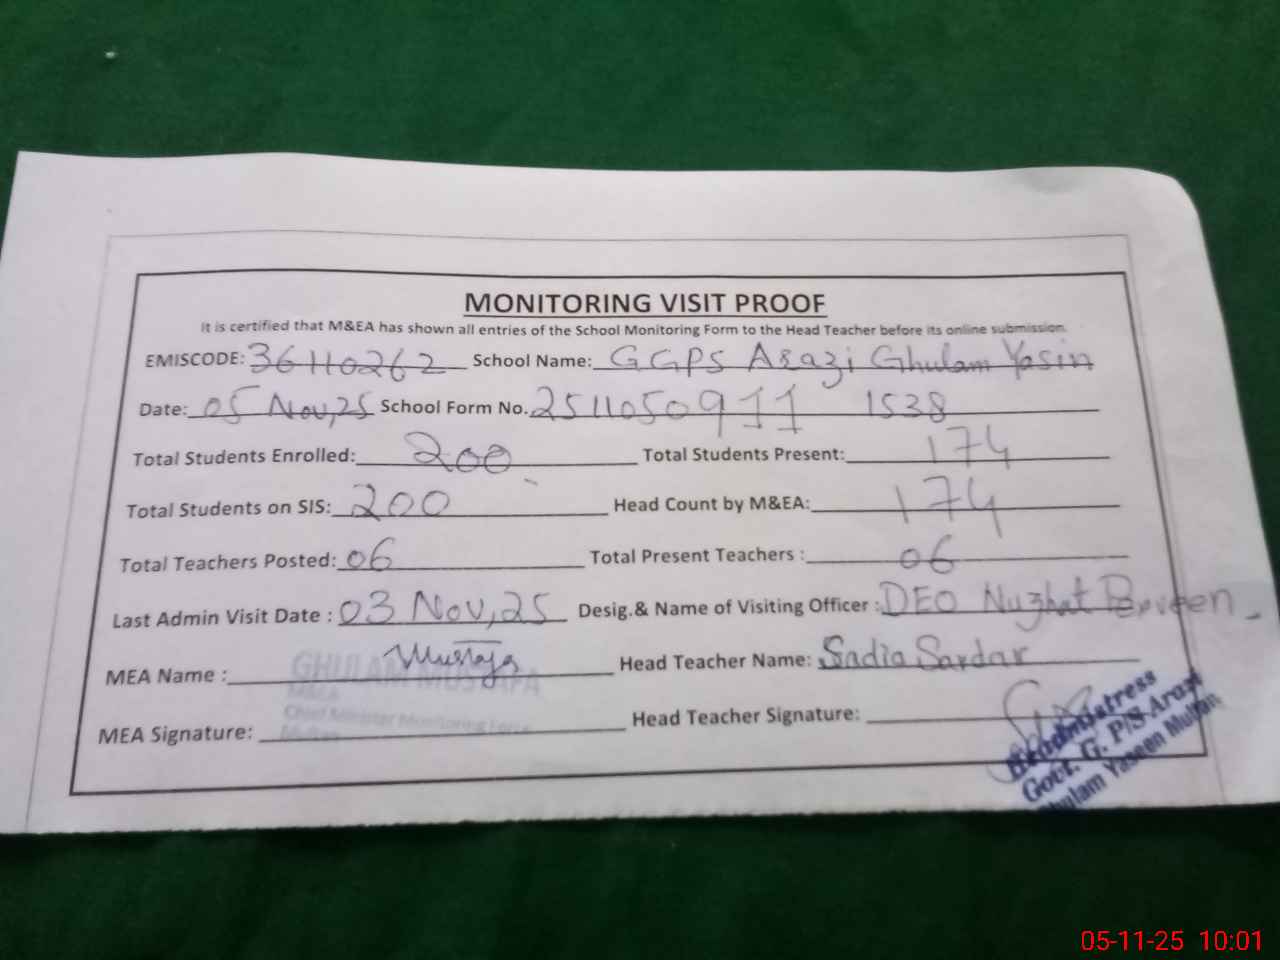 MONITORING VISIT PROOF
It is certified that M&EA has shown all entries of the School Monitoring Form to the Head Teacher before its online submission.
EMISCODE: 36110262 School Name: GGPS Arazi Ghulam Yasin
Date: 05 Nov,25 School Form No. 25110509 11 1538
Total Students Enrolled: 200 Total Students Present: 174
Total Students on SIS: 200 Head Count by M&EA: 174
Total Teachers Posted: 06 Total Present Teachers : 06
Last Admin Visit Date : 03 Nov,25 Desig.& Name of Visiting Officer : DEO Nuzhat Perveen
MEA Name : Mustafa Head Teacher Name: Sadia Sardar
GHULAM MUSTAFA
MEA
Chief Minister Monitoring Force
Multan
MEA Signature: Head Teacher Signature:
Headmistress
Govt. G. P/S Arazi
Ghulam Yaseen Multan
05-11-25 10:01